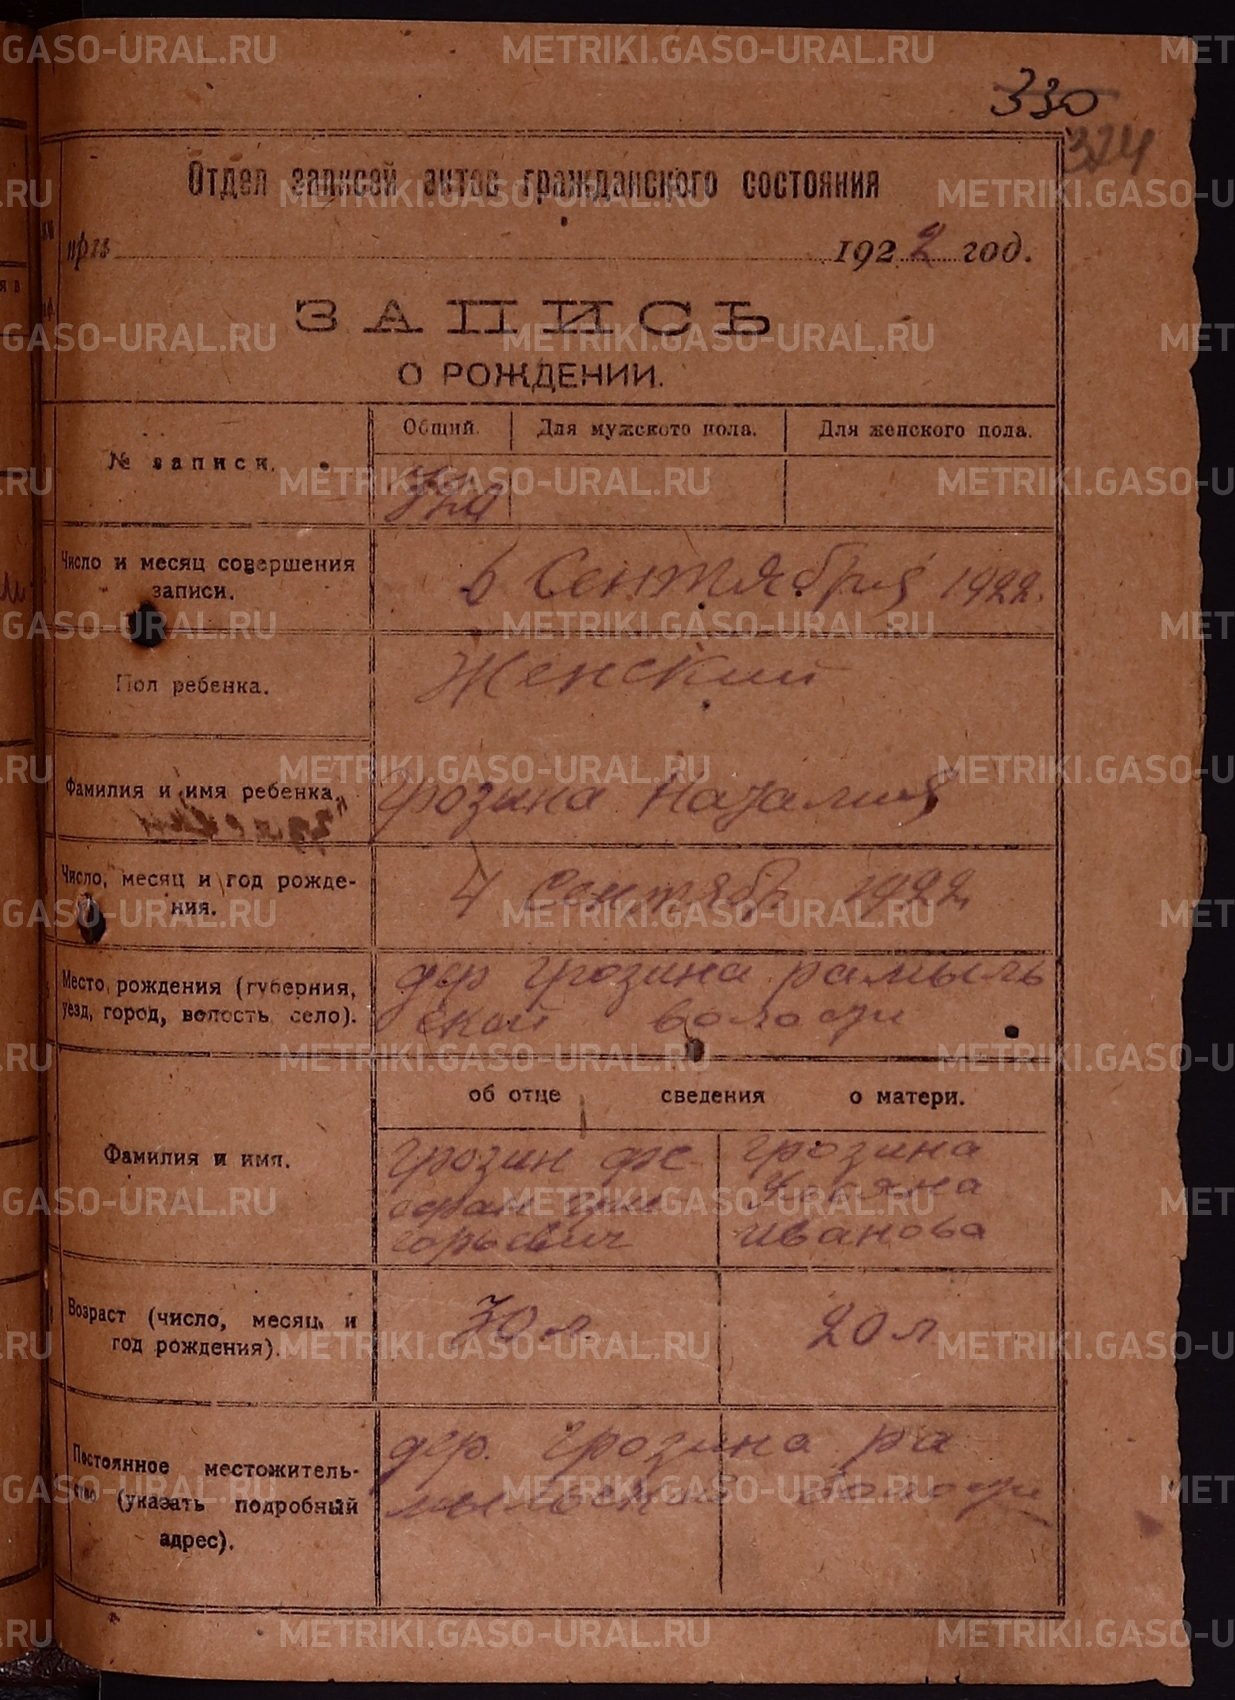 330
324
Отдел записей актов гражданского состояния
при 1922 год.
ЗАПИСЬ
О РОЖДЕНИИ.
Общий. Для мужского пола. Для женского пола.
№ записи.
Число и месяц совершения записи.
6 Сентября 1922.
Пол ребенка.
Женский
Фамилия и имя ребенка.
Грозина Наталия
Число, месяц и год рожде-
ния.
4 Сентябр 1922
Место рождения (губерния,
уезд, город, волость село).
дер Грозина рамыль
ской волости
об отце сведения о матери.
Фамилия и имя.
Грозин
горьевич
Грозина
Иванова
Возраст (число, месяц и
год рождения).
20 л
Постоянное местожитель-
ство (указать подробный
адрес).
дер. Грозина ра
мыльской волости
METRIKI.GASO-URAL.RU